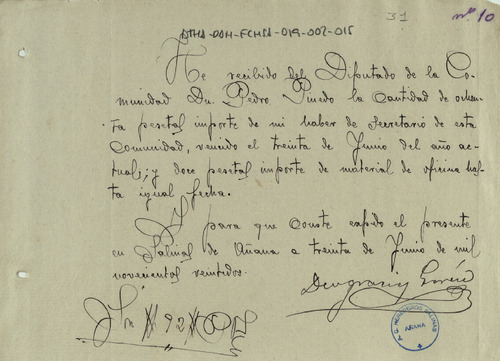 ATHA-DAH-FCHSA-019-002-015
31
nº 10
He recibido del Diputado de la Co-
munidad Dn. Pedro Pinedo la cantidad de ochen-
ta pesetas importe de mi haber de Secretario de esta
Comunidad, vencido el treinta de Junio del año ac-
tual; y doce pesetas importe de material de oficina has-
ta igual fecha.
Y para que conste expido el presente
en Salinas de Añana a treinta de Junio de mil
novecientos veintidos.
Deogracias
Son 92